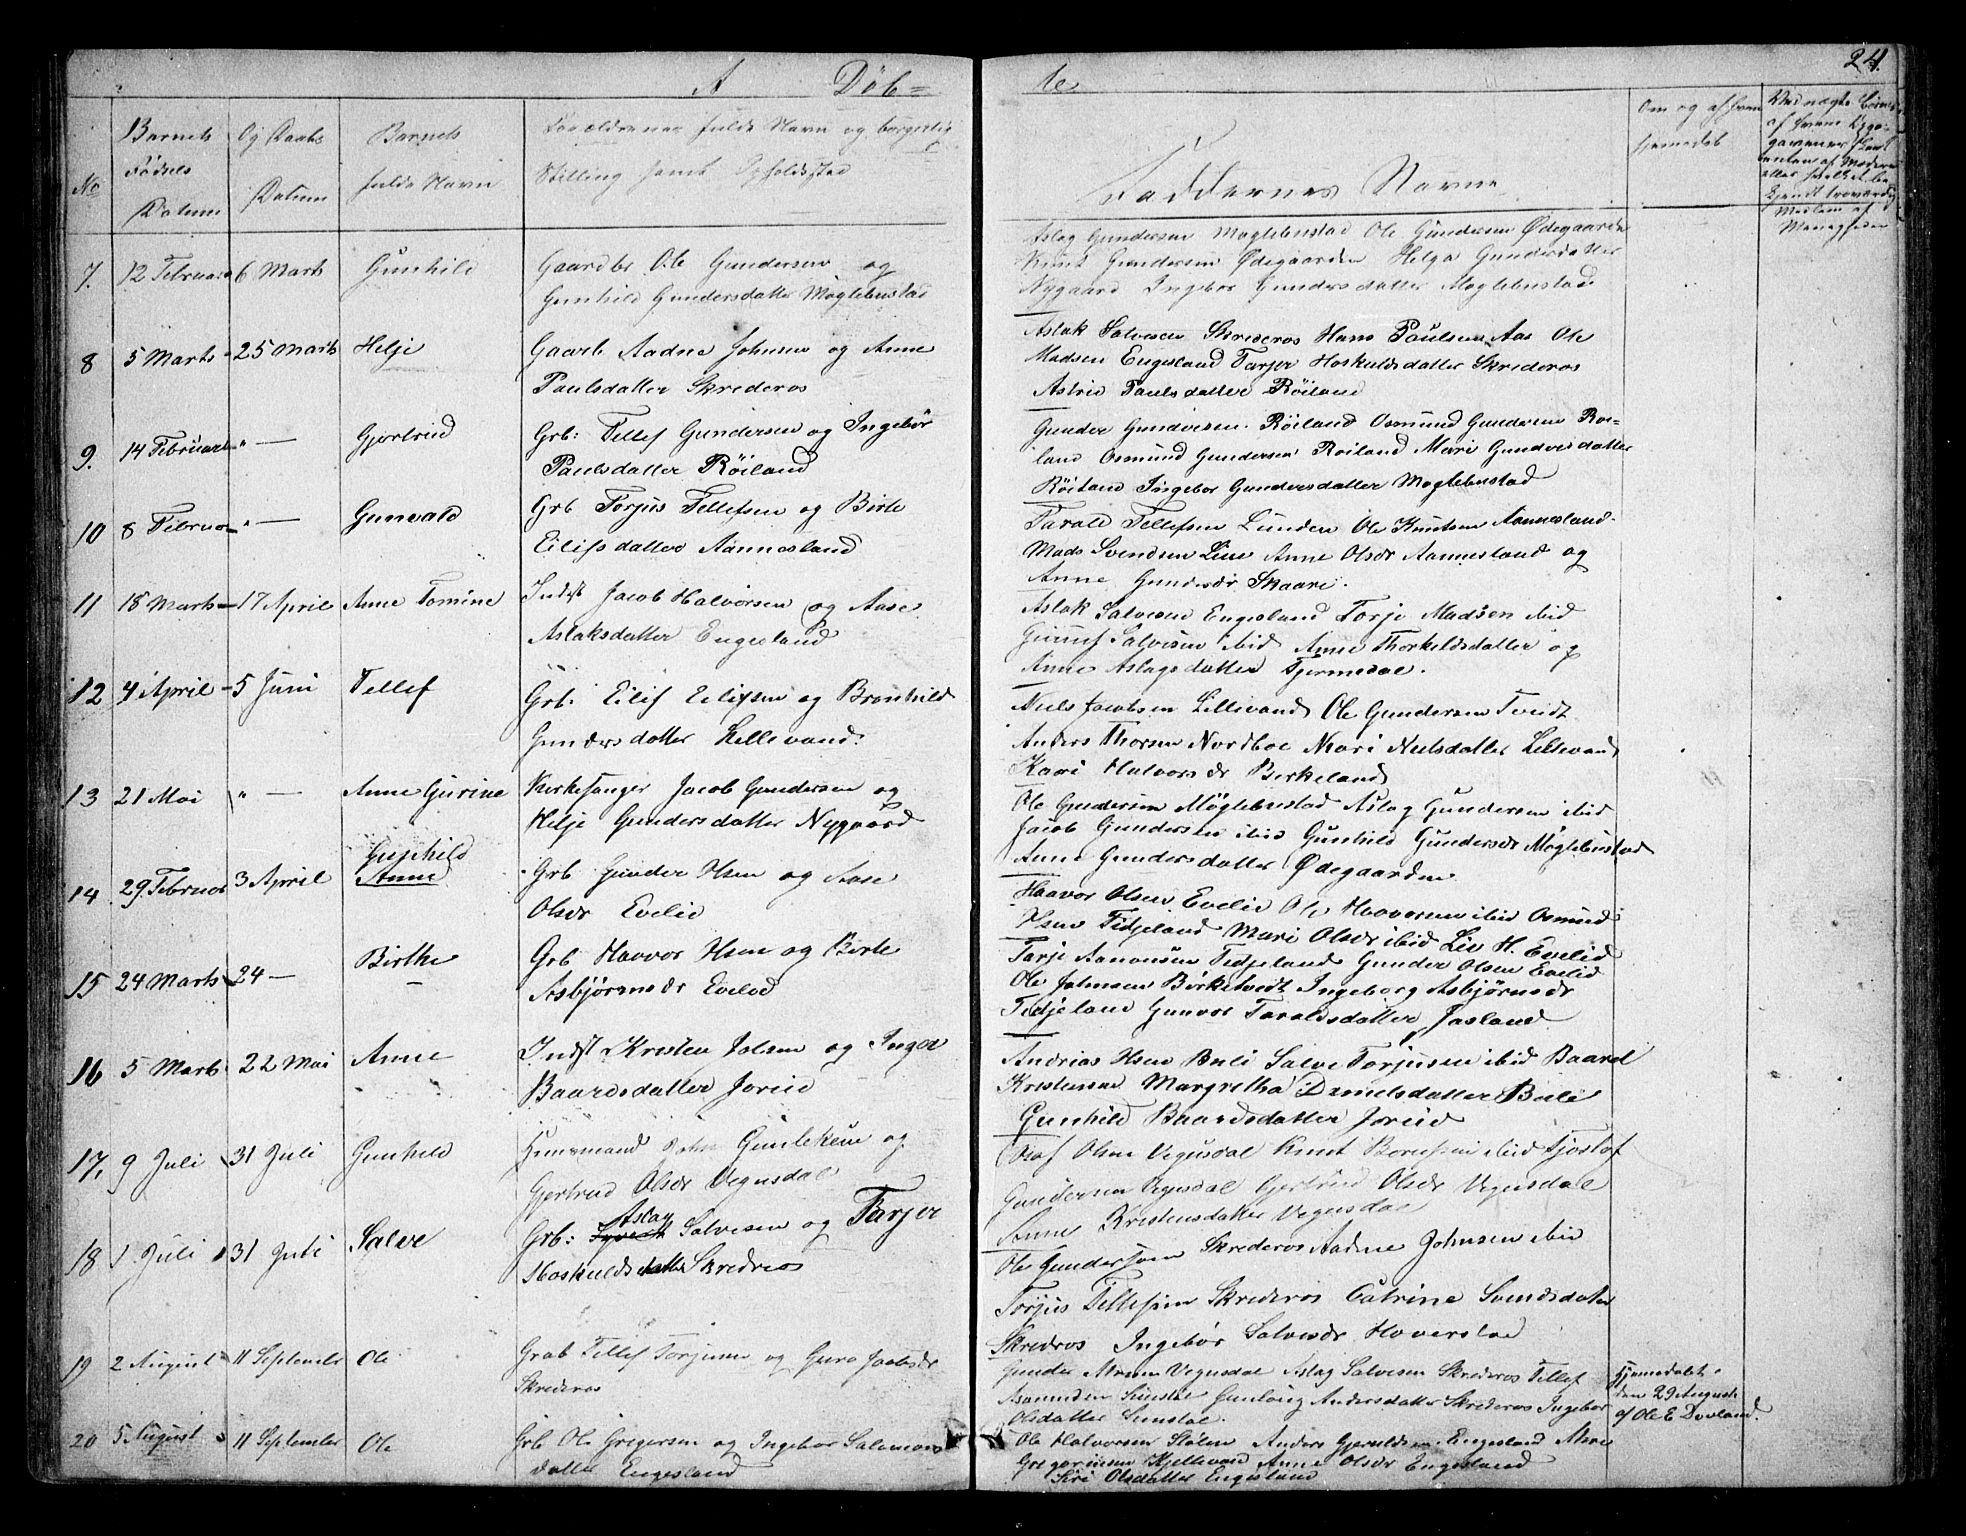 A Døb=
te
24.
No
Barnets Fødsels Datum
Og Daabs Datum
Barnets fulde Navn
Forældrenes fulde Navn og borgerlig Stilling samt Opholdssted
Faddernes Navne
Om og af hvem hjemmedøbt
7. 12 Februar 6 Marts Gunhild Gaardbr Ole Gundersen og
Gunhild Gundersdatter Møglebustad
Aslag Gundersen Møglebustad Ole Gundersen Ødegaarden
Knut Gundersen Ødegaarden Helga Gundersdatter
Nygaard Ingebor Gundersdatter Møglebustad
8 5 Marts 25 Marts Helje Gaarb Aadne Johnsen og Anne
Paulsdatter Skrederos
Aslak Salvesen Skrederos Hans Paulsen Aas Ole
Madsen Engesland Tarjer Hoskuldsdatter Skrederos
Astrid Pauls datter Røiland
9. 14 Februar " — Gjertrud Grb: Tellef Gundersen og Ingebør
Paulsdatter Røiland
Gunder Gundersen Røiland Osmund Gundersen Røi-
land Osmund Gundersen Røiland Mari Gundersdatter
Røiland Ingebor Gundersdatter Møglebustad
10 8 Februar " — Gunvald Grb Torjus Tellefsen og Birte
Eilifsdatter Aannesland
Tarald Tellefsen Lunden Ole Knutsen Aannesland
Mads Svendsen Lien Anne Olsdr Aannesland og
Anne Gundersdr Skaare.
11 18 Marts 17 April Anne Tomine Indst Jacob Halvorsen og Aase
Aslaksdatter Engesland
Aslak Salvesen Engesland Torje Madsen ibid
Salvesen ibid Anne Thorkeldsdatter og
Anne Aslagsdatter Tjermedal.
12 4 April 5 Juni Tellef Grb: Eilif Eilifsen og Brønhild
Gundersdatter Lillevand.
Niels Jacobsen Lillevand Ole Gundersen Tveidt
Anders Thorsen Nordboe Mari Nielsdatter Lillevand
Kari Halvorsdr Birkeland
13 21 Mai " — Anne Gurine Kirkesanger Jacob Gundersen og
Helje Gundersdatter Nygaard
Ole Gundersen Møglebustad Aslag Gundersen ibid
Jacob Gundersen ibid Gunhild Gundersdr Møglebustad
Anne Gundersdatter Ødegaarden
14 29 Februar 3 April Gunhild
Anne Grb Gunder Olsen og Aase
Olsdr Evelid
Haavor Olsen Evelid Ole Haavorsen ibid Osmund
Olsen Tidjeland Mari Olsdr ibid Liv H. Evelid
15 24 Marts 24 — Birthe Grb Haavor Olsen og Birte
Asbjørnsdr Evelid
Tarje Aanonsen Tidjeland Gunder Olsen Evelid
Ole Johnsen Birketvedt Ingeborg Asbjørnsdr
Tidjeland Gunvor Taraldsdatter Jasland
16 5 Marts 22 Mai Anne Indst Kristen Jolsen og Inger
Baardsdatter Joreid
Andrias Olsen Buli Salve Torjusen ibid Baard
Kristensen Margretha Danielsdatter Buli
Gunhild Baardsdatter Joreid
17, 9 Juli 31 Juli Gunhild Huusmand John Gunleksen og
Gjertrud Olsdr Vegusdal
Olaf Olsen Vegusdal Knut ibid Tjøstof
Gundersen Vegusdal Gjertrud Olsdr Vegusdal
Anne Kristensdatter Vegusdal
18 1. Juli 31 Juli Salve Grb: Aslag Salvesen og Tarjer
Hoskulds datter Skrederos
Ole Gundersen Skrederos Aadne Johnsen ibid
Torjus Tellefsen Skrederos Catrine Svendsdatter
Skrederos Ingebør Salvesdr Hoverstad
19 2 August 11 September Ole Grdb Tellef Torjusen og Guro Jacobsdr
Skrederos
Gunder Vegusdal Aslag Salvesen Skrederos Tellef
Aamundsen Senstøl Gunloug Andersdatter Skrederos Ingebor
Olsdatter Senstøl.
Hjemedøbt
den 29 August
af Ole E Dovland.
20 5 August 11 September Ole Grb Ole Gregersen og Ingebor Salomons
datter Engesland
Ole Halvorsen Stølen Anders Engesland
Gregersen Kjellevand Anne Olsdr Engesland
Siri Olsdatter Engesland